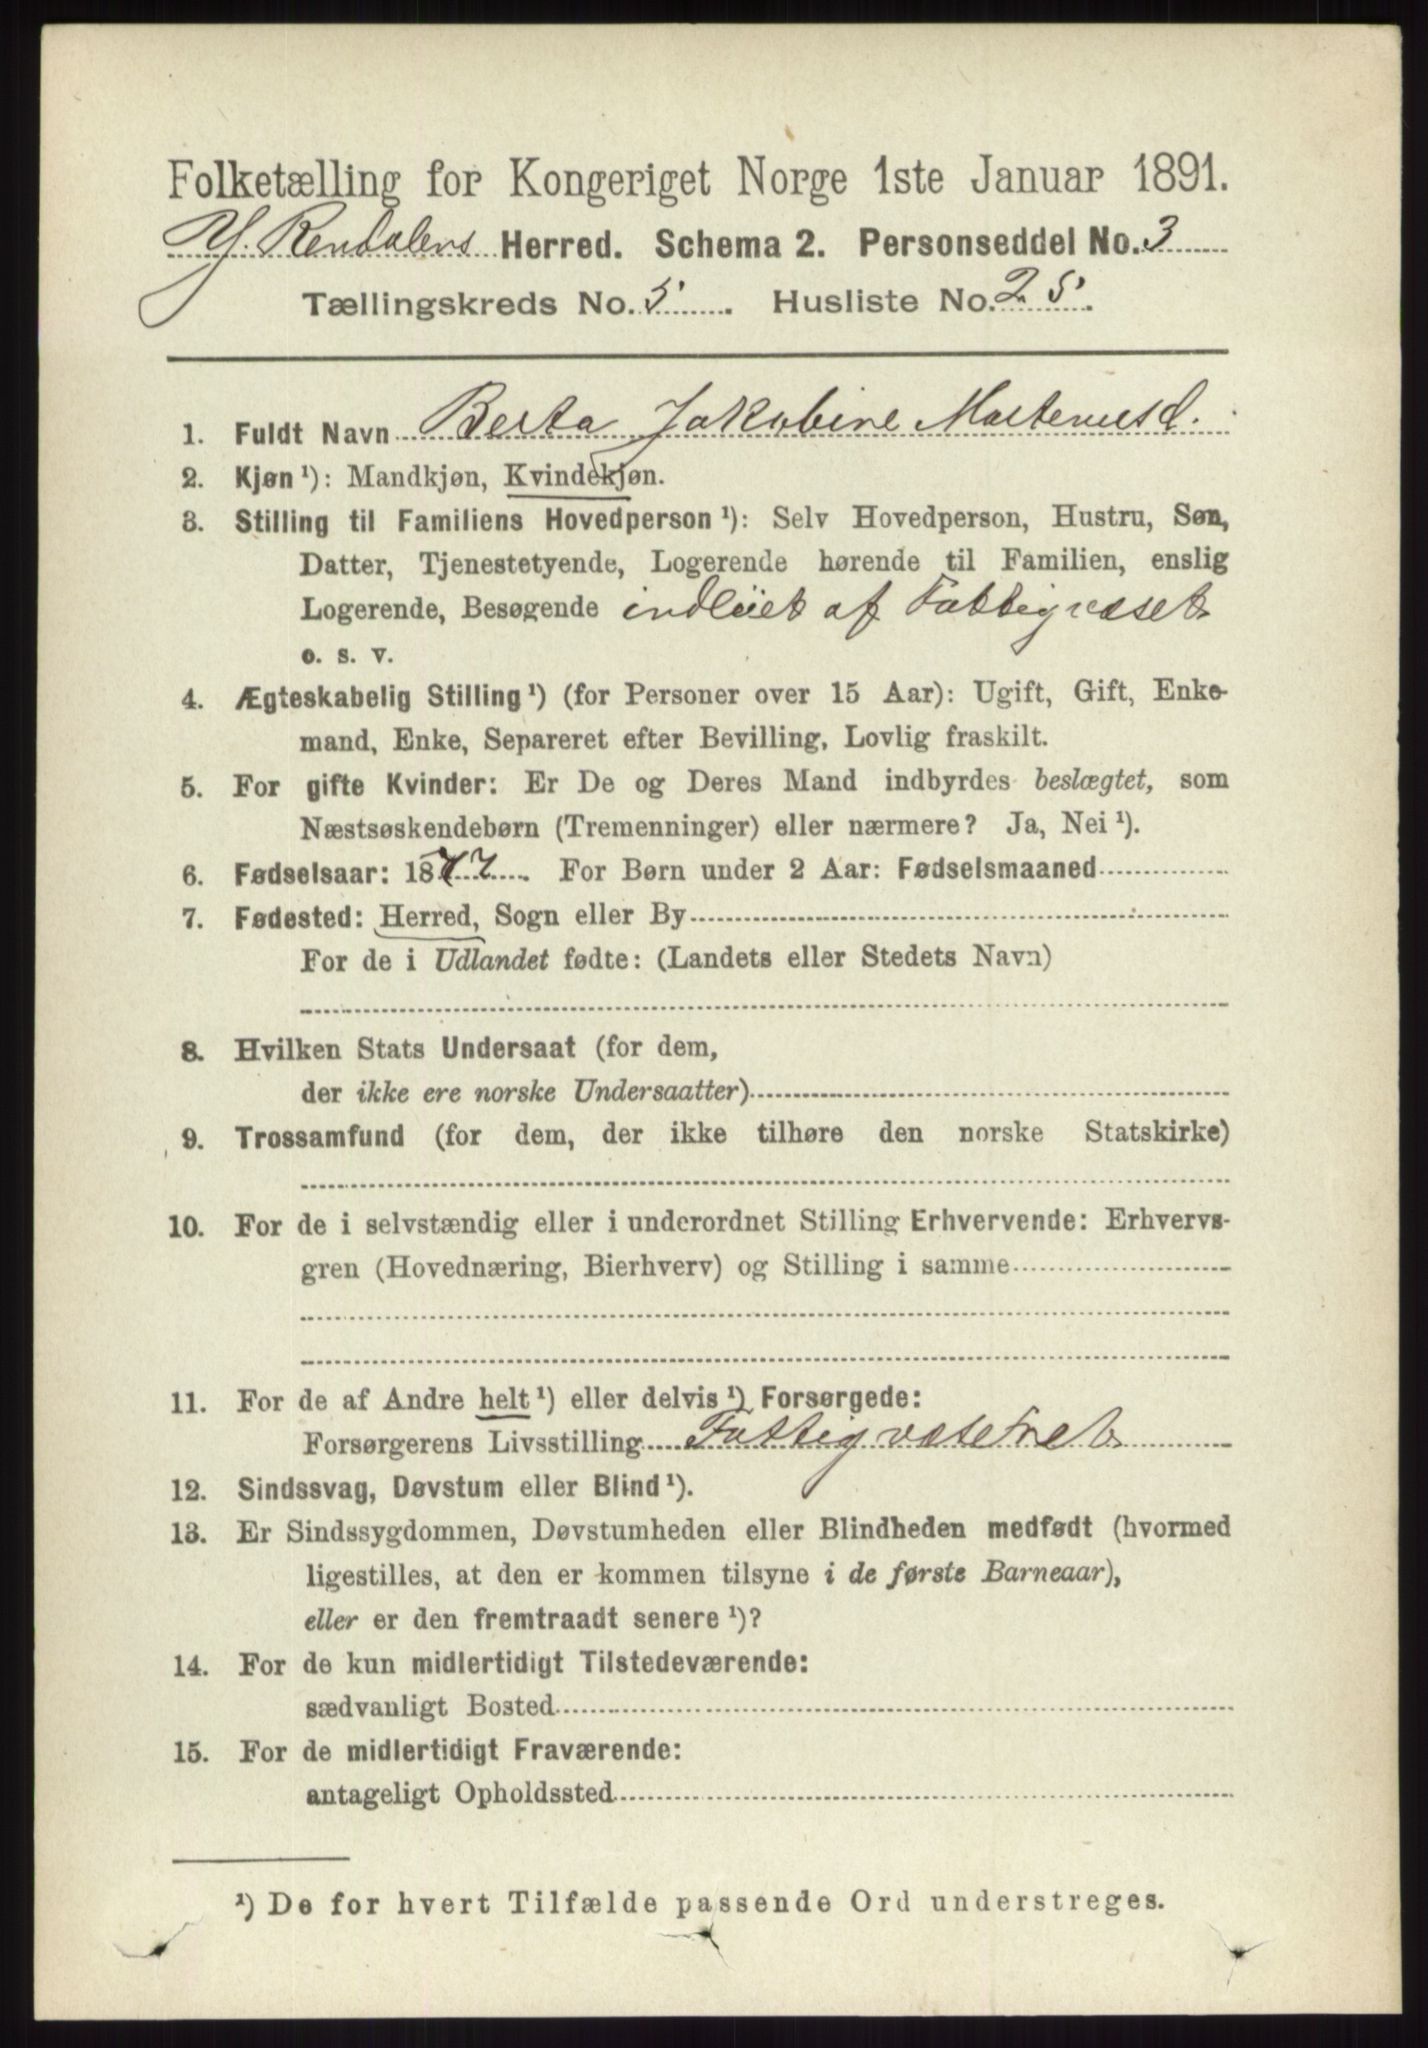 Folketælling for Kongeriget Norge 1ste Januar 1891.
Y. Rendalens Herred. Schema 2. Personseddel No. 3
Tællingskreds No. 5. Husliste No. 25.
1. Fuldt Navn Berta Jakobine Martenusd.
2. Kjøn ¹): Mandkjøn, Kvindekjøn.
3. Stilling til Familiens Hovedperson ¹): Selv Hovedperson, Hustru, Søn,
Datter, Tjenestetyende, Logerende hørende til Familien, enslig
Logerende, Besøgende af Fattigvæset
o. s. v.
4. Ægteskabelig Stilling ¹) (for Personer over 15 Aar): Ugift, Gift, Enke-
mand, Enke, Separeret efter Bevilling, Lovlig fraskilt.
5. For gifte Kvinder: Er De og Deres Mand indbyrdes beslægtet, som
Næstsøskendebørn (Tremenninger) eller nærmere? Ja, Nei ¹).
6. Fødselsaar: 1877. For Børn under 2 Aar: Fødselsmaaned
7. Fødested: Herred, Sogn eller By
For de i Udlandet fødte: (Landets eller Stedets Navn)
8. Hvilken Stats Undersaat (for dem,
der ikke ere norske Undersaatter)
9. Trossamfund (for dem, der ikke tilhøre den norske Statskirke)
10. For de i selvstændig eller i underordnet Stilling Erhvervende: Erhvervs-
gren (Hovednæring, Bierhverv) og Stilling i samme
11. For de af Andre helt ¹) eller delvis ¹) Forsørgede:
Forsørgerens Livsstilling Fattigvæsenet
12. Sindssvag, Døvstum eller Blind ¹).
13. Er Sindssygdommen, Døvstumheden eller Blindheden medfødt (hvormed
ligestilles, at den er kommen tilsyne i de første Barneaar),
eller er den fremtraadt senere ¹)?
14. For de kun midlertidigt Tilstedeværende:
sædvanligt Bosted
15. For de midlertidigt Fraværende:
antageligt Opholdssted
¹) De for hvert Tilfælde passende Ord understreges.